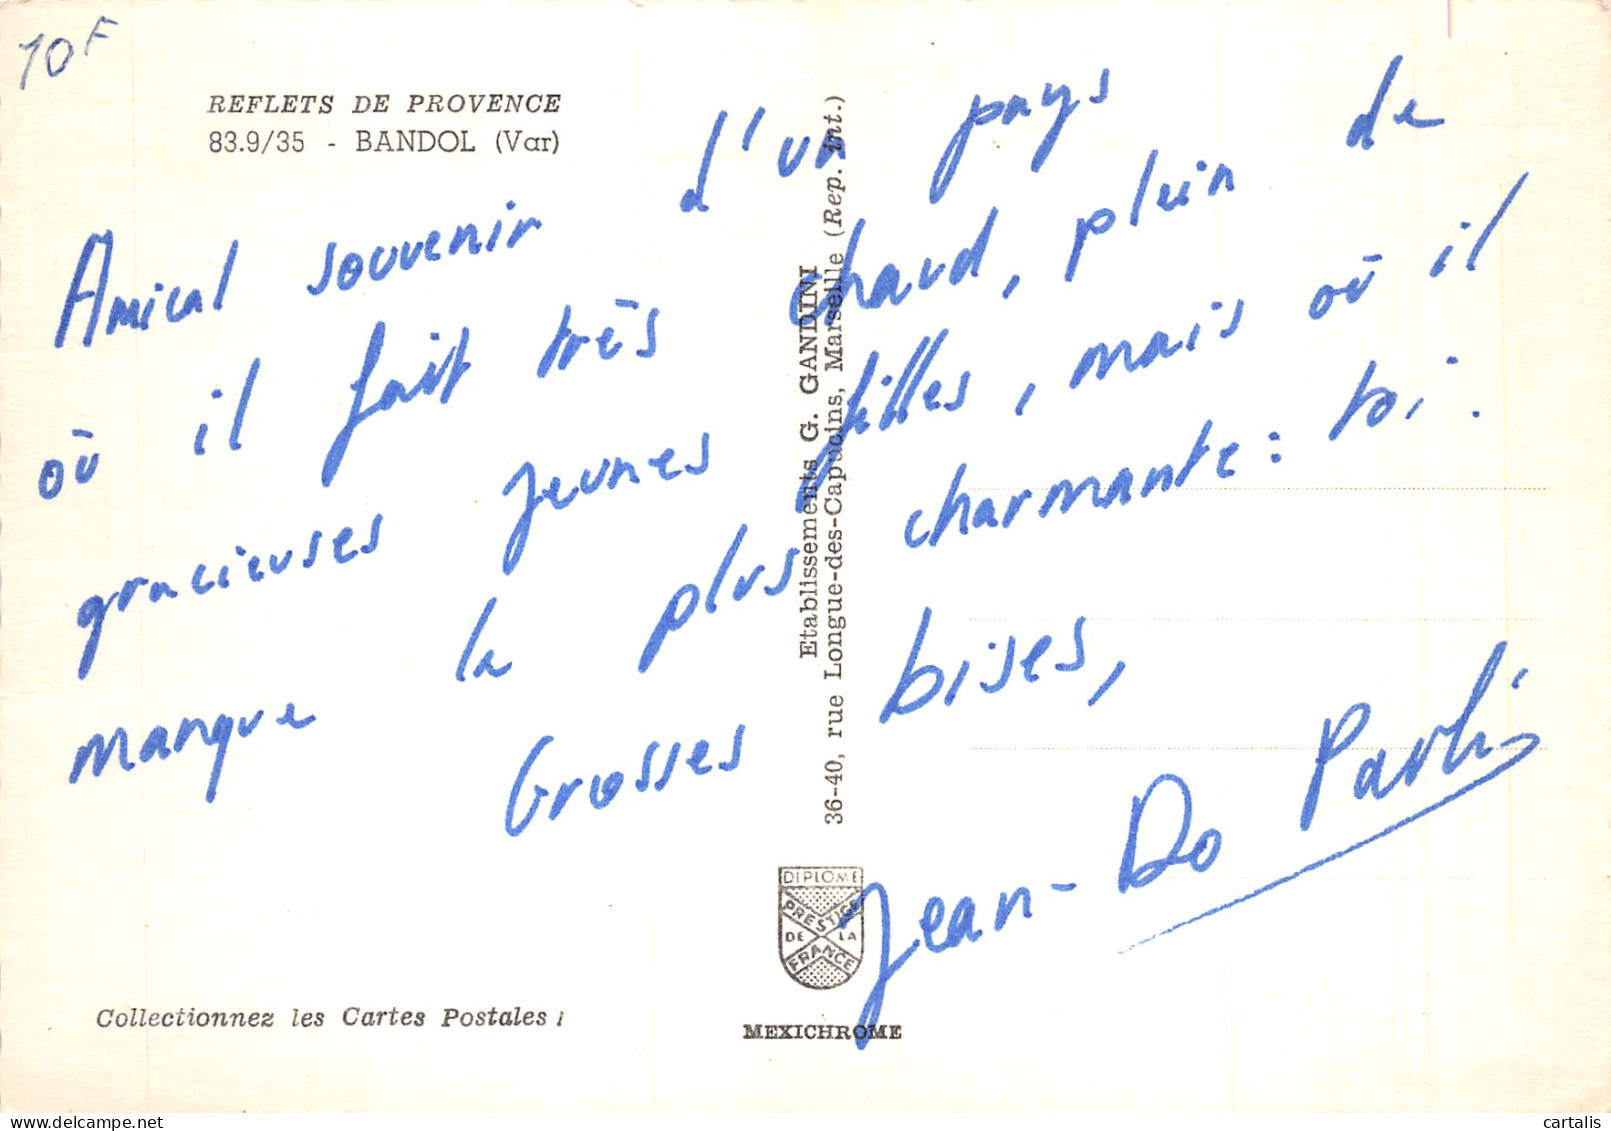 10F
REFLETS DE PROVENCE
83.9/35 - BANDOL (Var)
Amical souvenir d'un pays
où il fait très chaud, plein de
gracieuses jeunes filles, mais où il
manque la plus charmante : toi.
Grosses bises,
Jean-Do
Etablissements G. GANDINI
36-40, rue Longue-des-Capucins, Marseille (Rep. int.)
DIPLOME
PRESTIGE
DE LA
FRANCE
MEXICHROME
Collectionnez les Cartes Postales !
cartalis